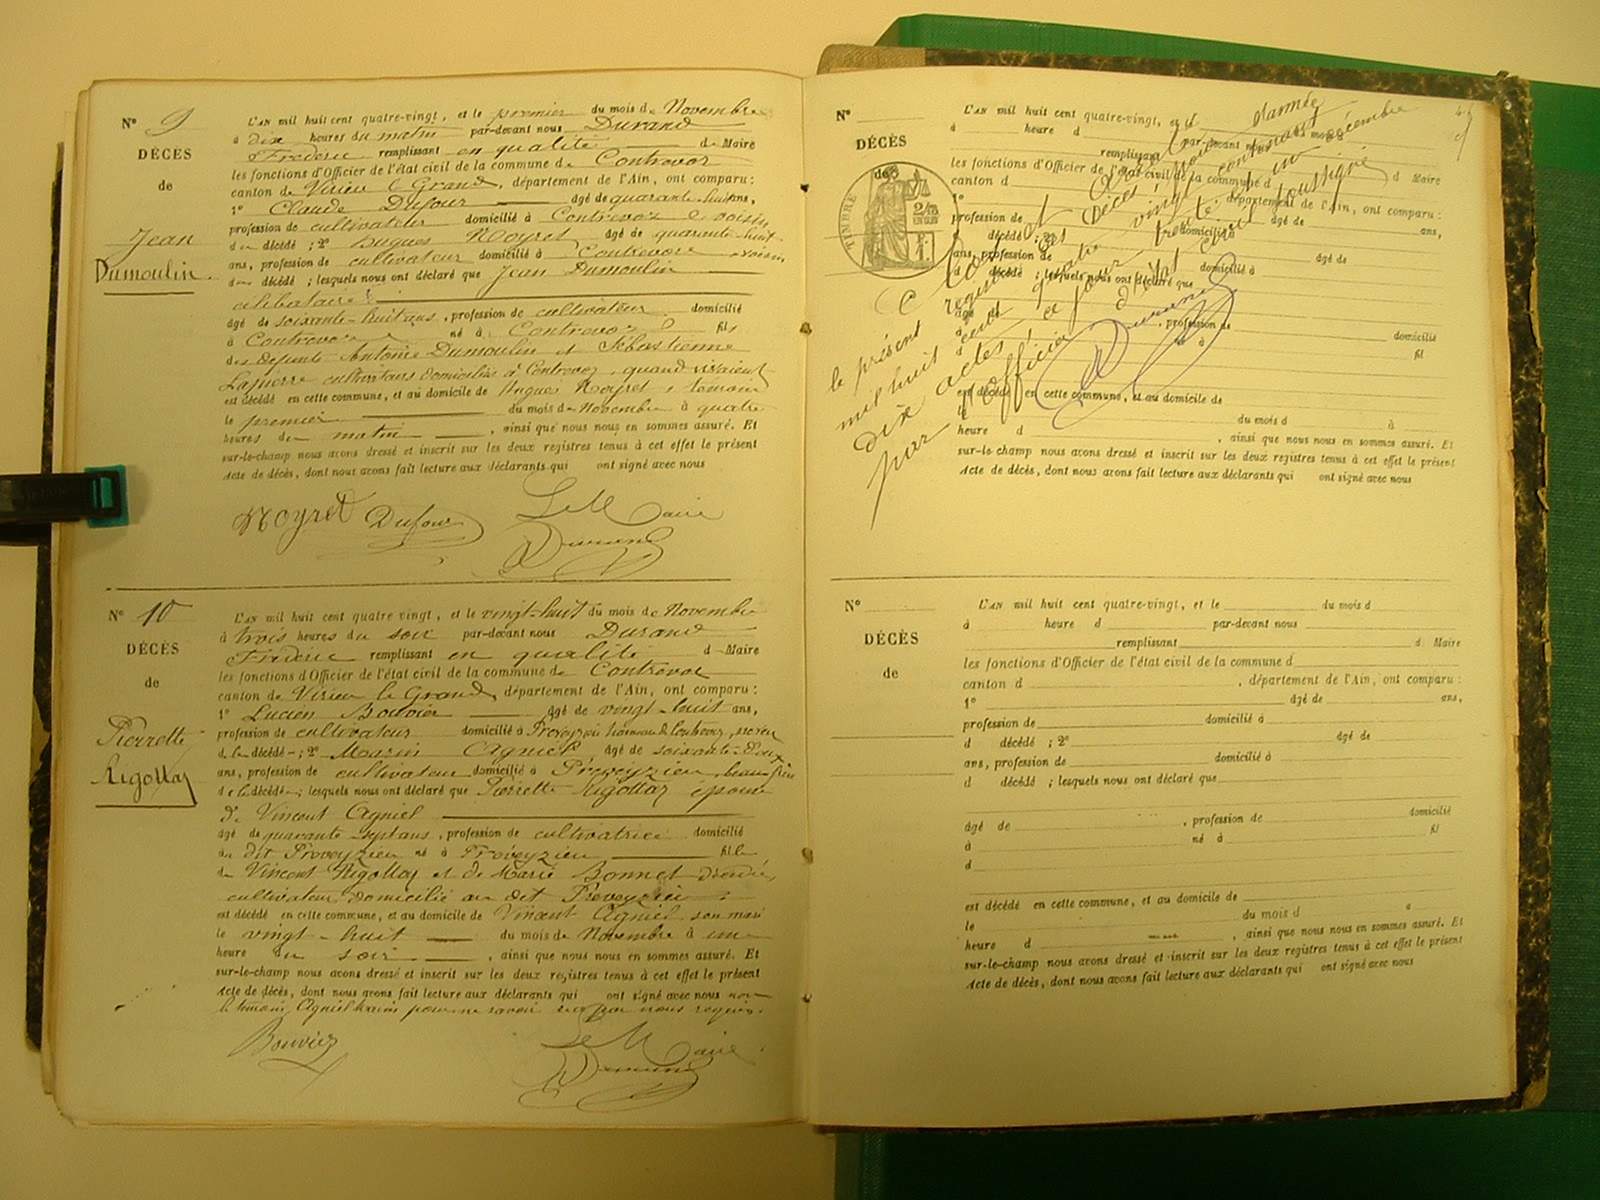 N° 9
DÉCÈS
de
Jean
Dumoulin
L'AN mil huit cent quatre-vingt, et le premier du mois de Novembre
à dix heures du matin par-devant nous Durand
Frédéric remplissant en qualité de Maire
les fonctions d'Officier de l'état civil de la commune de Contrevoz
canton de Virieu le Grand, département de l'Ain, ont comparu :
1° Claude Dufour âgé de quarante huit ans,
profession de cultivateur domicilié à Contrevoz voisin
du décédé ; 2° Hugues Noyret âgé de quarante huit
ans, profession de cultivateur domicilié à Contrevoz voisin
du décédé ; lesquels nous ont déclaré que Jean Dumoulin
célibataire
âgé de soixante-huit ans, profession de cultivateur domicilié
à Contrevoz né à Contrevoz fils
des défunts Antoine Dumoulin et Sébastienne
cultivateurs domiciliés à Contrevoz, quand vivaient
est décédé en cette commune, et au domicile de Hugues Noyret, témoin
le premier du mois de Novembre à quatre
heures du matin, ainsi que nous nous en sommes assuré. Et
sur-le-champ nous avons dressé et inscrit sur les deux registres tenus à cet effet le présent
Acte de décès, dont nous avons fait lecture aux déclarants qui ont signé avec nous
Noyret Dufour Le Maire
Durand
N° 10
DÉCÈS
de
Pierrette
Rigollaz
L'AN mil huit cent quatre vingt, et le vingt-huit du mois de Novembre
à trois heures du soir par-devant nous Durand
Frédéric remplissant en qualité d Maire
les fonctions d'Officier de l'état civil de la commune de Contrevoz
canton de Virieu le Grand, département de l'Ain, ont comparu :
1° Lucien Bouvier âgé de vingt-huit ans,
profession de cultivateur domicilié à Preveyzieu hameau de Contrevoz, neveu
de la décédée ; 2° Marin Agniel âgé de soixante-deux
ans, profession de cultivateur domicilié à Preveyzieu, beau-frère
de la décédée ; lesquels nous ont déclaré que Pierrette Rigollaz épouse
de Vincent Agniel
âgé de quarante-sept ans, profession de cultivatrice domicilié
au dit Preveyzieu né à Preveyzieu fille
de Vincent Rigollaz et de Marie Bonnet
cultivateur domicilié au dit Preveyzieu
est décédé en cette commune, et au domicile de Vincent Agniel son mari
le vingt-huit du mois de Novembre à une
heure du soir, ainsi que nous nous en sommes assuré. Et
sur-le-champ nous avons dressé et inscrit sur les deux registres tenus à cet effet le présent
Acte de décès, dont nous avons fait lecture aux déclarants qui ont signé avec nous non
le témoin Agniel Marin pour ne savoir par nous requis.
Bouvier Le Maire
Durand
N°
DÉCÈS
de
TIMBRE
L'AN mil huit cent quatre-vingt, et le du mois d
à heure d par-devant nous
remplissant d Maire
les fonctions d'Officier de l'état civil de la commune d
canton d , département de l'Ain, ont comparu :
1° âgé de ans,
profession de domicilié à
d décédé ; 2° âgé de
ans, profession de domicilié à
d décédé ; lesquels nous ont déclaré que
âgé de , profession de domicilié
à né à fil
d
est décédé en cette commune, et au domicile de
le du mois d à
heure d , ainsi que nous nous en sommes assuré. Et
sur-le-champ nous avons dressé et inscrit sur les deux registres tenus à cet effet le présent
Acte de décès, dont nous avons fait lecture aux déclarants qui ont signé avec nous
Clos et arrêté
le présent registre des décès pour l'année
mil huit cent quatre vingt contenant
dix actes, ce jour trente un décembre
par l'officier d'état civil soussigné
Durand
N°
DÉCÈS
de
L'AN mil huit cent quatre-vingt, et le du mois d
à heure d par-devant nous
remplissant d Maire
les fonctions d'Officier de l'état civil de la commune d
canton d , département de l'Ain, ont comparu :
1° âgé de ans,
profession de domicilié à
d décédé ; 2° âgé de
ans, profession de domicilié à
d décédé ; lesquels nous ont déclaré que
âgé de , profession de domicilié
à né à fil
d
est décédé en cette commune, et au domicile de
le du mois d à
heure d , ainsi que nous nous en sommes assuré. Et
sur-le-champ nous avons dressé et inscrit sur les deux registres tenus à cet effet le présent
Acte de décès, dont nous avons fait lecture aux déclarants qui ont signé avec nous